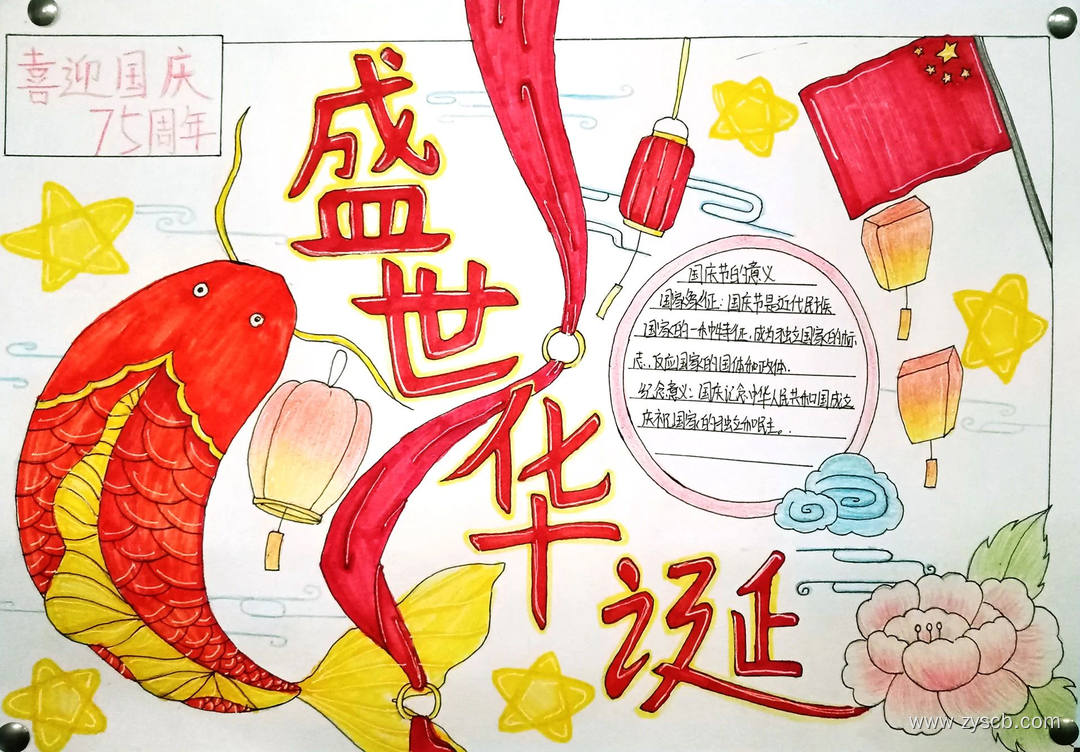 喜迎国庆
75周年
盛世华诞
国庆节的意义
国家象征：国庆节是近代民族
国家的一种特征，成为独立国家的标
志，反应国家的国体和政体．
纪念意义：国庆纪念中华人民共和国成立
庆祝国家的独立和民主。
www.zyscb.com